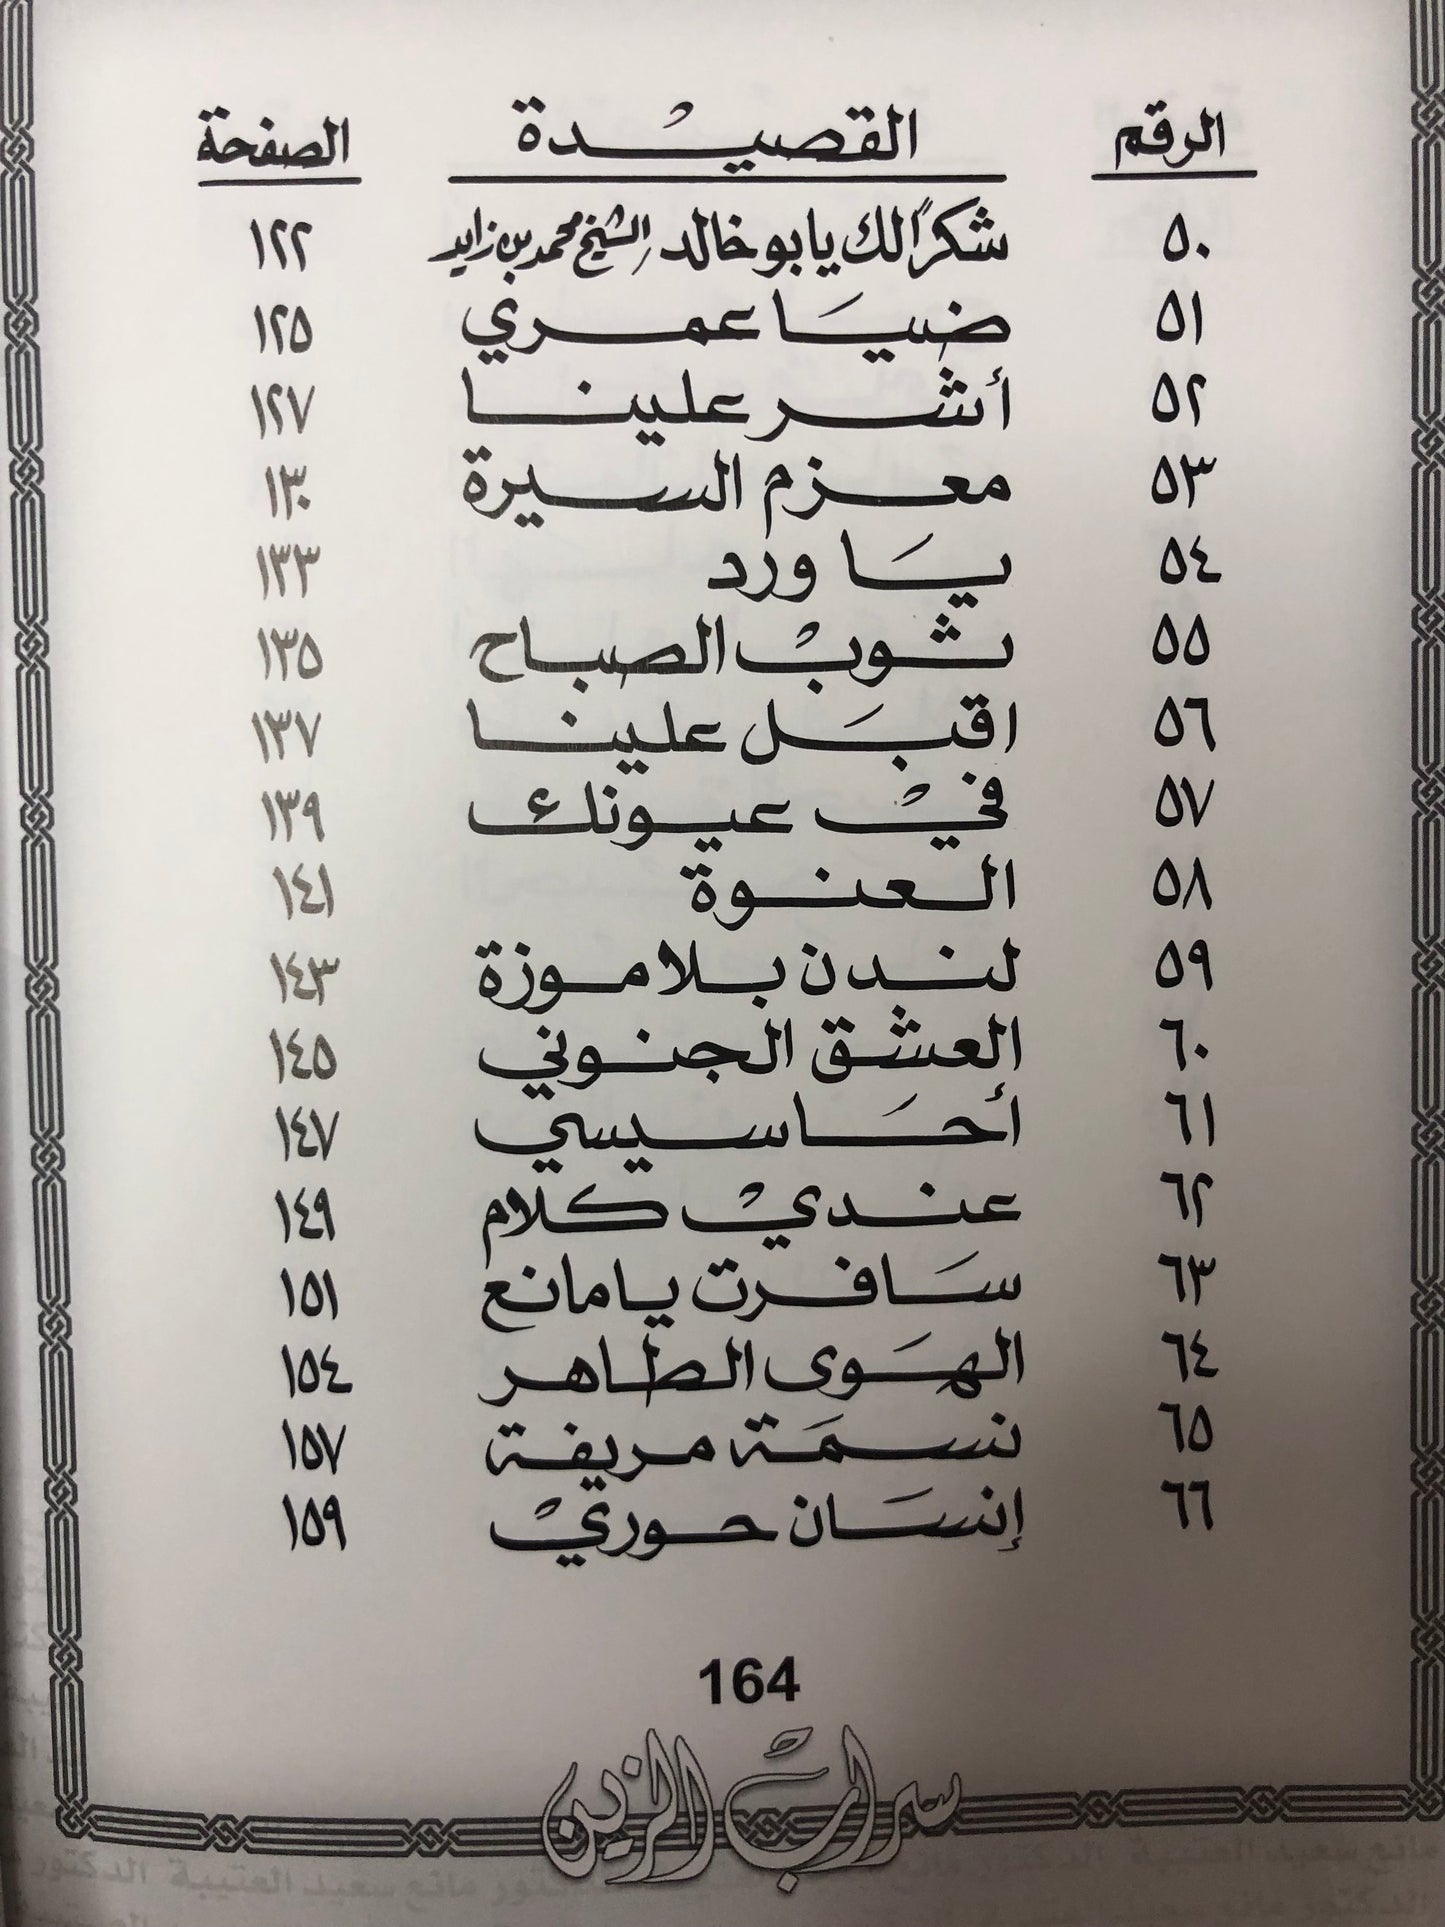 الرقم القصيدة الصفحة
٥٠ شكرًا لك يا بو خالد الشيخ محمد بن زايد ١٢٢
٥١ ضيا عمري ١٢٥
٥٢ أشر علينا ١٢٧
٥٣ معزم السيرة ١٣٠
٥٤ يا ورد ١٣٣
٥٥ ثوب الصباح ١٣٥
٥٦ اقبل علينا ١٣٧
٥٧ في عيونك ١٣٩
٥٨ العنوة ١٤١
٥٩ لندن بلا موزة ١٤٣
٦٠ العشق الجنوني ١٤٥
٦١ أحاسيسي ١٤٧
٦٢ عندي كلام ١٤٩
٦٣ سافرت يا مانع ١٥١
٦٤ الهوى الطاهر ١٥٤
٦٥ نسمة مريفة ١٥٧
٦٦ إنسان حوري ١٥٩
164
سراب الزين
مانع سعيد العتيبة الدكتور مانع سعيد العتيبة الدكتور